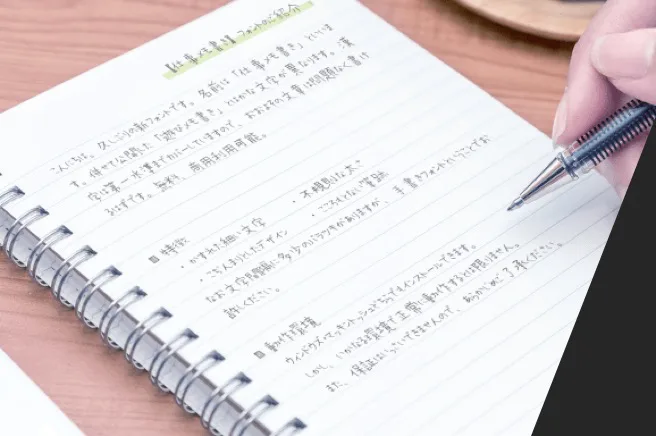 【仕事メモ書き】フォントのご紹介
こんにちは。久しぶりの新フォントです。名前は「仕事メモ書き」といいま
す。併せて公開した「雑なメモ書き」とはかな文字が異なります。漢
字は第一水準までカバーしていますので、おおよその文章は問題なく書け
るはずです。無料、商用利用可能。
■特徴
・かすれた細い文字
・不規則な太さ
・こぢんまりとしたデザイン
・こころもとない筆跡
なお文字間隔に多少のバラツキがありますが、手書きフォントということでお
許しください。
■動作環境
ウィンドウズ・マッキントッシュどちらでもインストールできます。
しかし、いかなる環境で正常に動作するとは限りません。
また、保証はいっさいできませんので、あらかじめご了承ください。